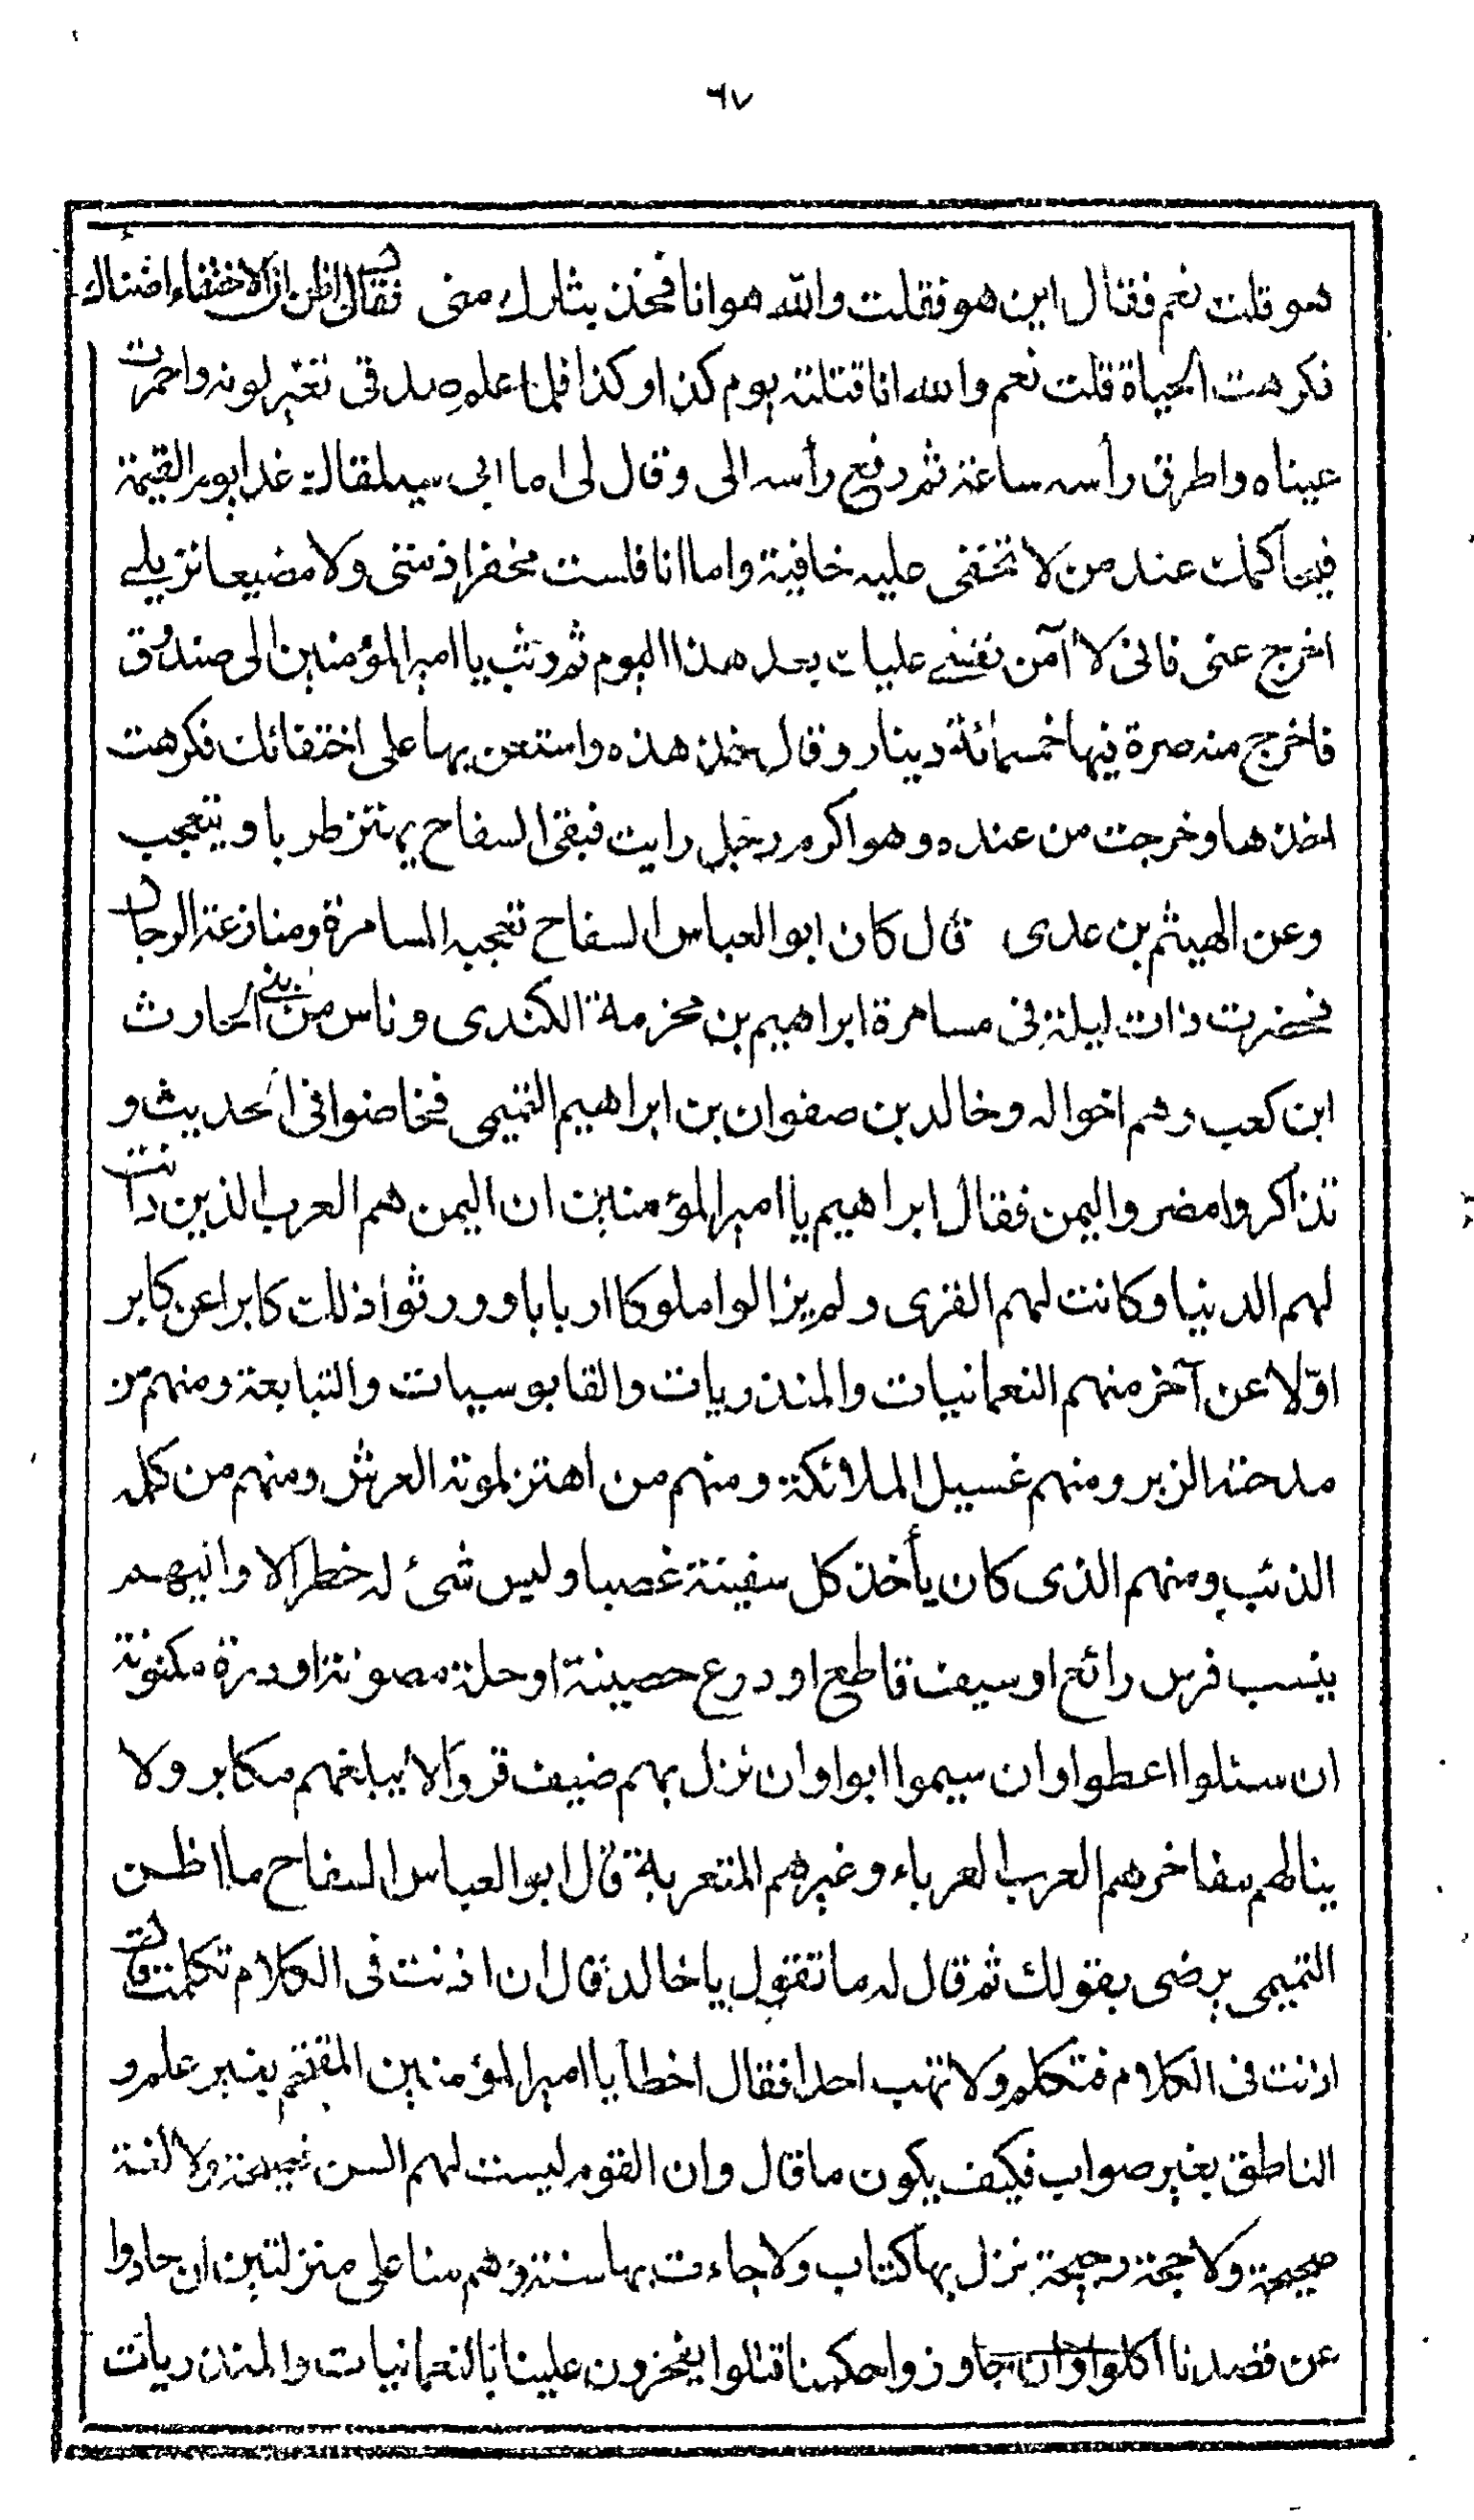 ٦٧
هو قلت نعم فقال اين هو فقلت والله هو انا فخذ بثارك منى فقال اظن ان الاختفاء امضاك
فكرهت الحياة قلت نعم والله انا قتلته يوم كذا وكذا فلما علم صدقى تغير لونه واحمرت
عيناه واطرق رأسه ساعة ثم رفع رأسه الى وقال لى اما ابى سيلقاك غدا يوم القيمة
فيحاكمك عند من لا تخفى عليه خافية واما انا فلست مخفرا ذمتى ولا مضيعا نزيلى
اخرج عنى فانى لا آمن نفسى عليك بعد هذا اليوم ثم وثب يا امير المؤمنين الى صندوق
فاخرج منه صرة فيها خمسمائة دينار وقال خذ هذه واستعن بها على اختفائك فكرهت
اخذها وخرجت من عنده وهو اكرم رجل رايت فبقى السفاح يهتز طربا ويتعجب
وعن الهيثم بن عدى قال كان ابو العباس السفاح تعجبه المسامرة ومنازعة الرجال
فحضرت ذات ليلة فى مسامرة ابراهيم بن مخرمة الكندى وناس من بنى الحارث
ابن كعب وهم اخواله وخالد بن صفوان بن ابراهيم التميمى فخاضوا فى الحديث و
تذاكروا مضر واليمن فقال ابراهيم يا امير المؤمنين ان اليمن هم العرب الذين دانت
لهم الدنيا وكانت لهم القرى ولم يزالوا ملوكا اربابا وورثوا ذلك كابرا عن كابر
اوّلا عن آخر منهم النعمانيات والمنذريات والقابوسيات والتبابعة ومنهم من
مدحته الزبر ومنهم غسيل الملائكة ومنهم من اهتز لموته العرش ومنهم من كلمه
الذئب ومنهم الذى كان يأخذ كل سفينة غصبا وليس شئ له خطر الا واليهم
ينسب فرس رائع او سيف قاطع او درع حصينة او حلة مصونة او درة مكنونة
ان سئلوا اعطوا وان سيموا ابوا وان نزل بهم ضيف قروا لا يبلغهم مكابر ولا
ينالهم مفاخر هم العرب العرباء وغيرهم المتعربة قال ابو العباس السفاح ما اظن
التميمى يرضى بقولك ثم قال له ما تقول يا خالد قال ان اذنت فى الكلام تكلمت قال
اذنت فى الكلام فتكلم ولا تهب احدا فقال اخطأ يا امير المؤمنين المقتحم بغير علم و
الناطق بغير صواب فكيف يكون ما قال وان القوم ليست لهم السن فصيحة ولا لغة
صحيحة ولا حجة رجيحة نزل بها كتاب ولا جاءت بها سنة وهم منا على منزلتين ان حادوا
عن قصدنا اكلوا وان جاوزوا حكمنا قتلوا يفخرون علينا بالنعمانيات والمنذريات